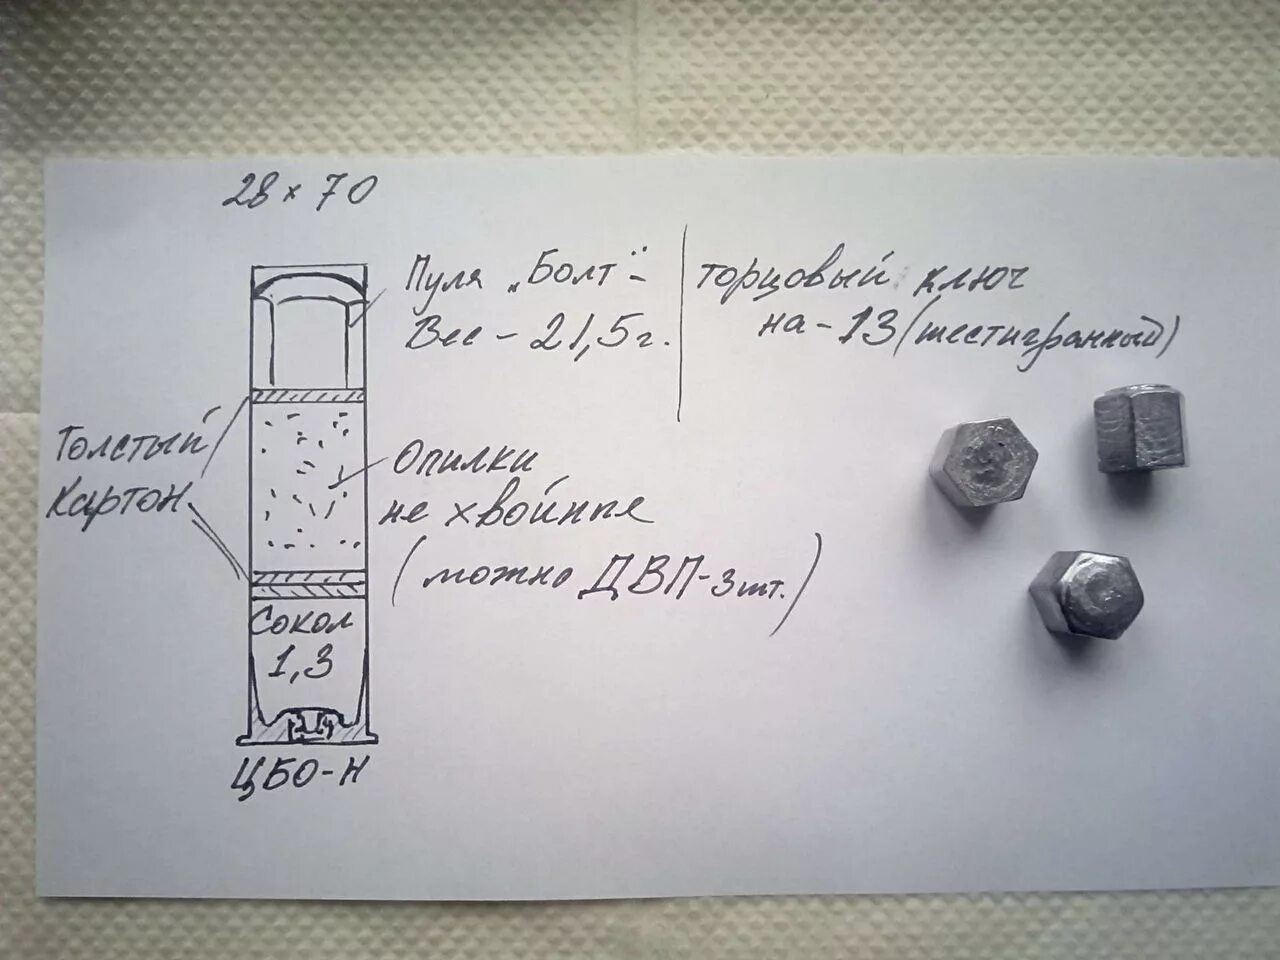 28 × 70
Пуля „Болт" -
Вес - 21,5 г.
торцовый ключ
на - 13 (шестигранный)
Толстый
картон
Опилки
не хвойные
(можно ДВП - 3 шт.)
Сокол
1,3
ЦБО-Н